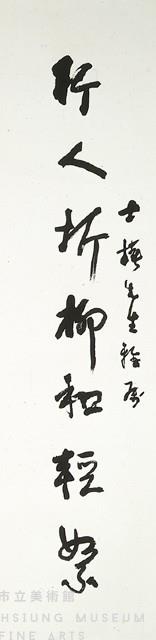 士梅先生雅屬
行人折柳和輕絮
市立美術館
HSIUNG MUSEUM
FINE ARTS